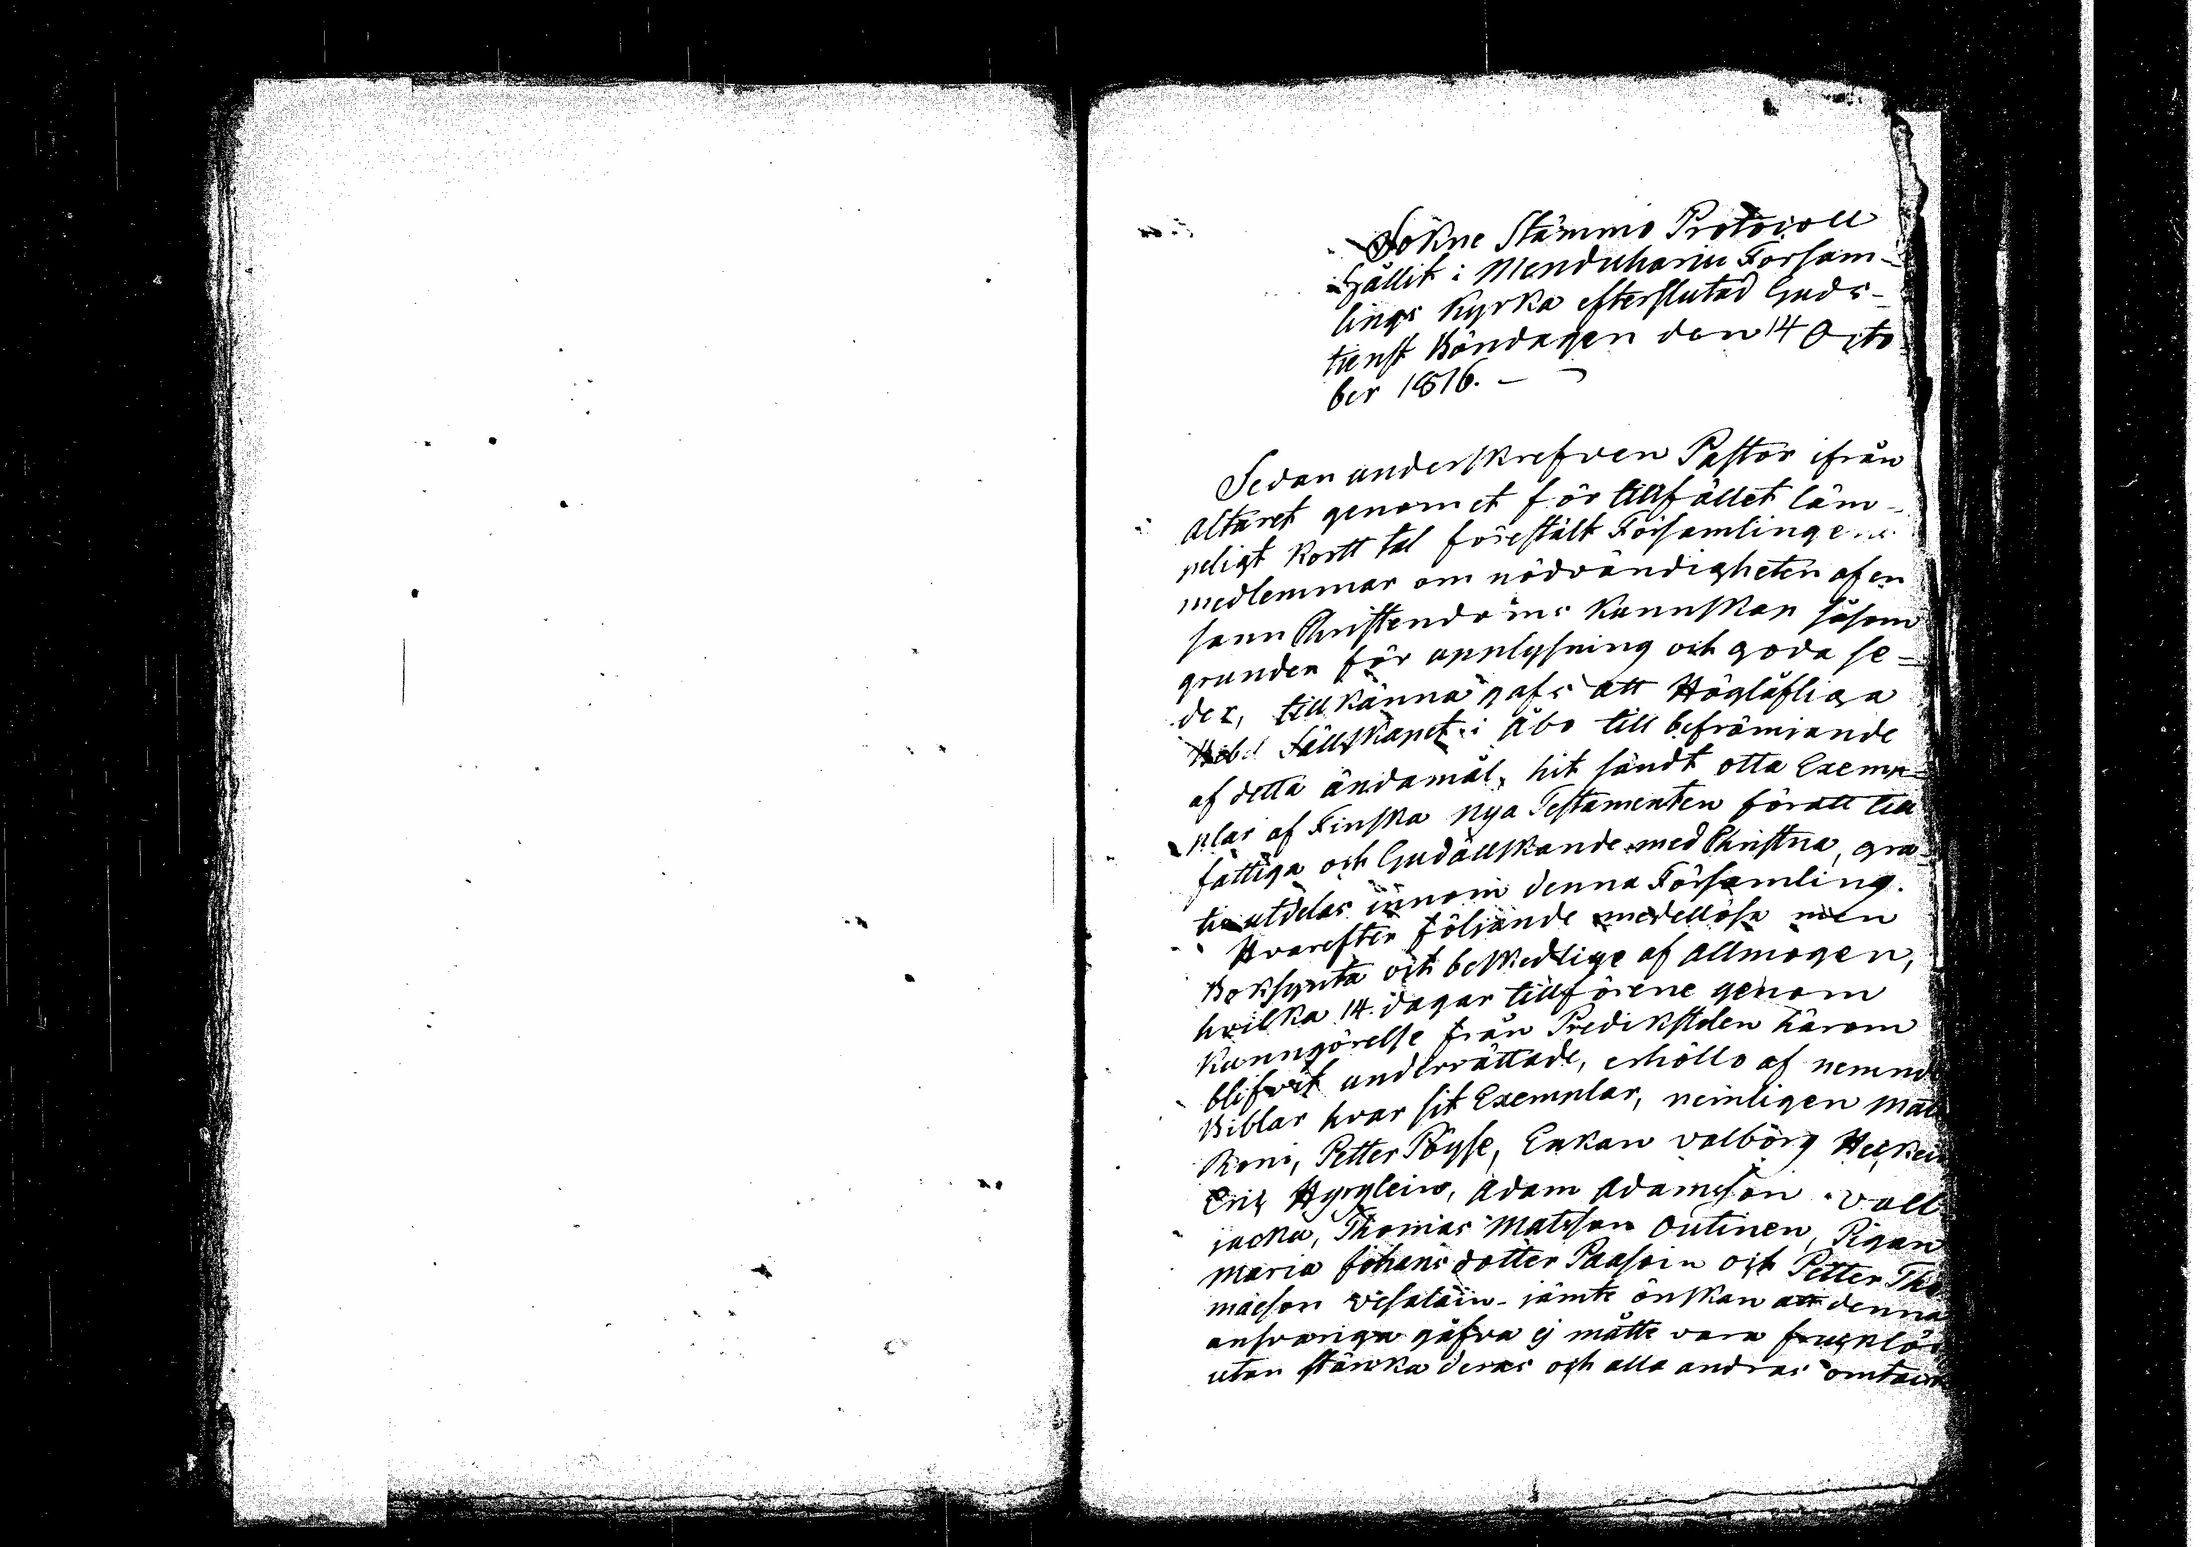 Sokne Stämmo Protocoll
Hållit i Menduharju Forsam-
lings Kyrka efterslutad Guds-
tienst Söndagen den 14 Octo
ber 1816. —
Sedan underskrefven Pastor ifrån
altaret genom et för tillfället läm-
peligt kort tal förestält Församlingens
medlemmar om nödvändigheten af en
sann Christendoms Kunnskap såsom
grunden för upplysning och goda se-
der, tillkänna gafs att Höglofliga
Bibel Sällskapet i Åbo till befrämiande
af detta ändamål, hit sändt otta Exem-
plar af Finska Nya Testamenten för att till
fattiga och Gudälskande medChristna, gra-
tis utdelas innom denna Församling.
Hvarefter följande medellösa men
Boksynta och beskedlige af allmogen,
hvilka 14 dagar tillförene genom
Kunngörelse från Predikstolen härom
blifvit underrättade, erhöllo af nemnde
Biblar hvar sit Exemplar, nemligen Matts
Petter Pöyse, Enkan Valborg
Eric Adam Adamsson
Thomas Matsson Outinen, Pigan
Maria Johansdotter Paasoin och Petter Tho
masson Vesalain jämte önskan att denna
gåfva ej måtte vara fruktlös
utan stärka deras och alla andras omtanka